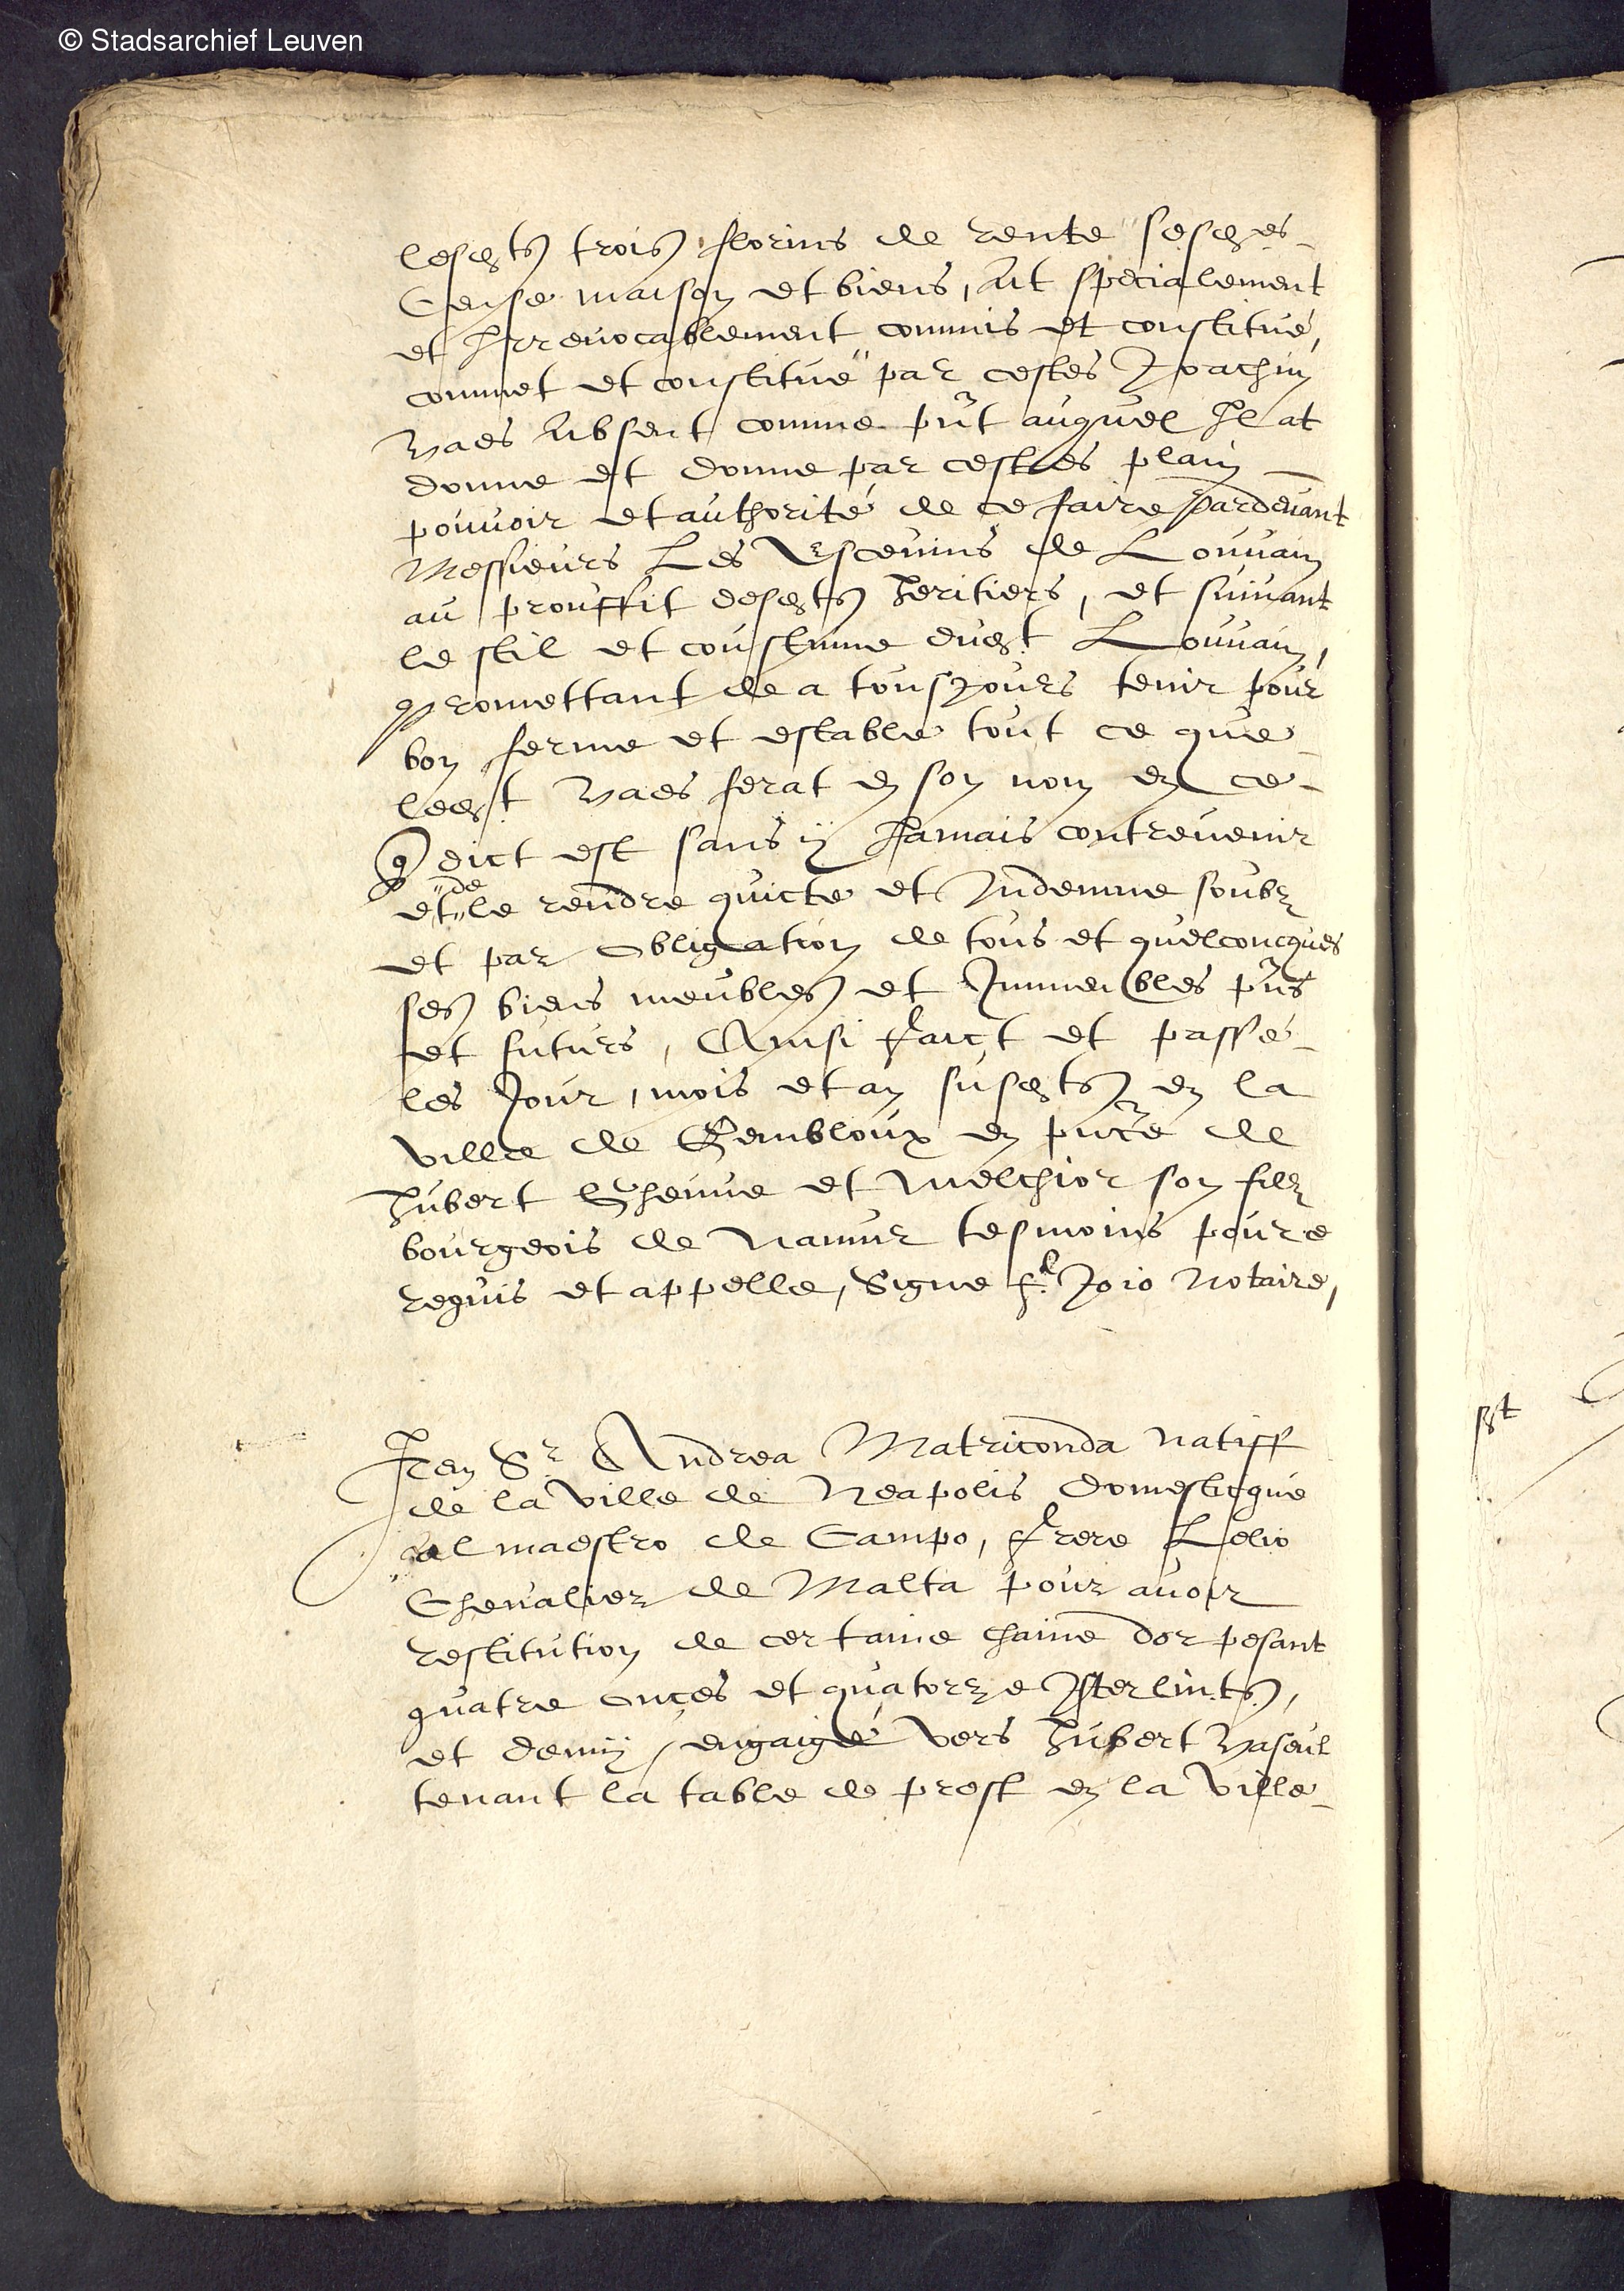 © Stadsarchief Leuven
lesdts trois florins de rente sesdes
Cense maison et biens, At specialement
et Irrevocablement commis et constitué,
commet et constitue par cestes Joachin
Vaes Absent comme pnt auquel Il at
donne et donne par cestes plain
pouvoir et authorité de ce faire pardevant
Messieurs Les Escevins de Louvain
au prouffit desdts heritiers, et suivant
le stil et coustume dudt Louvain,
promettant de a tousjours tenir pour
bon ferme et estable tout ce que
ledt Vaes ferat en son nom en ce
q dict est sans ÿ Jamais contrevenir
et de le rendre quicte et Indemne soubz
et par obligation de tous et quelconcques
ses biens meubles et Immeubles pns
et futurs, Ainsi faict et passé
les Jour, mois et an susdts en la
ville de Gembloux en pnce de
hubert Ghenne et Melchior son filz
bourgeois de Namur tesmoins pour e
requis et appelle, Signe f. Joio Notaire,
Item Sr Andrea Matriconda natiff
de la ville de Neapolis domesticque
al maestro de Campo, frere Lelio
Chevalier de Malta pour avoir
restitution de certaine chaine dor pesant
quatre onces et quatorze Jsterlints,
et demÿ engaigé vers hubert
tenant la table de prest en la ville